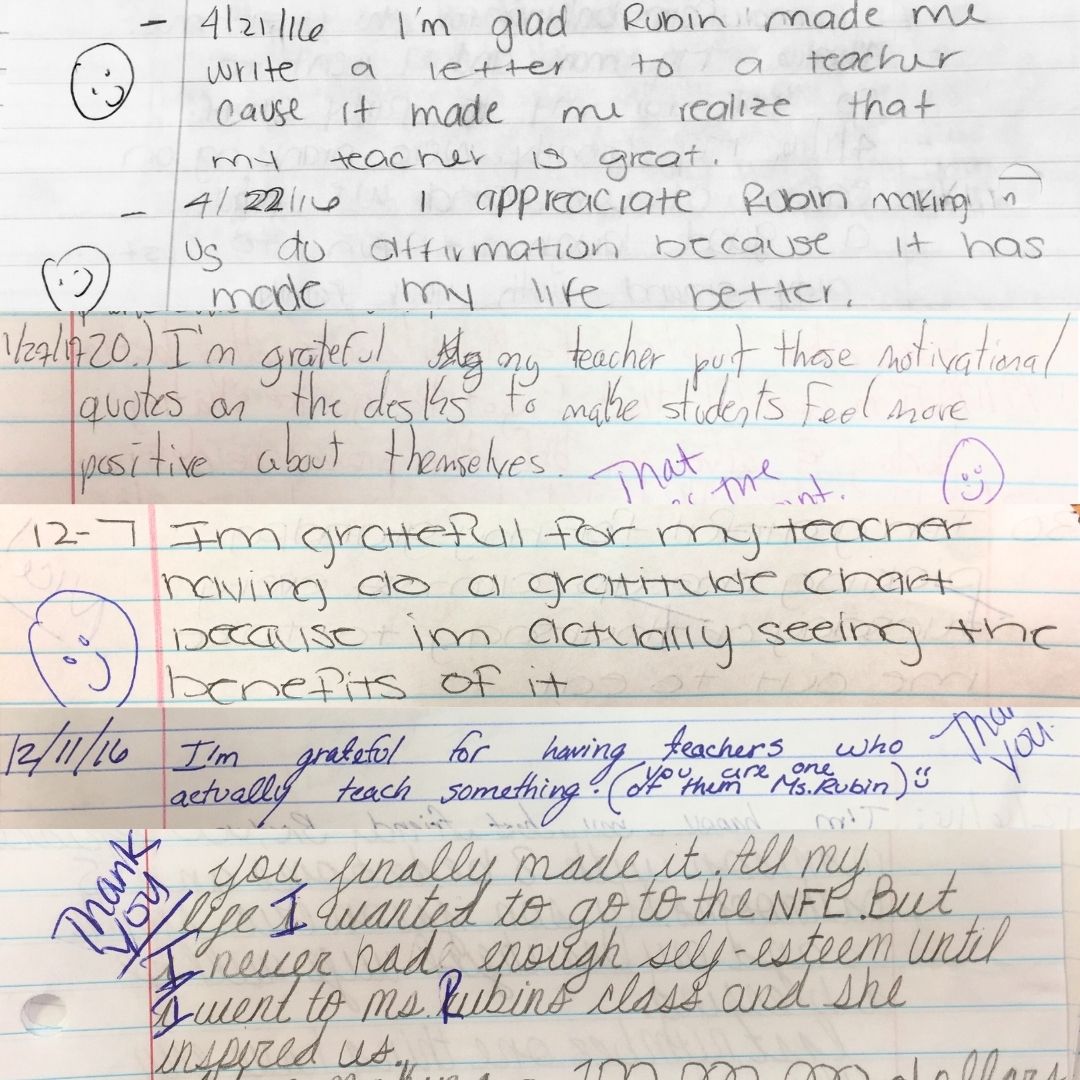 - 4/21/16 I'm glad Rubin made me
write a letter to a teacher
cause it made me realize that
my teacher is great.
- 4/22/16 I appreaciate Rubin making
us do affirmation because it has
made my life better.
20.) I'm grateful my teacher put those motivational
quotes on the desks to make students feel more
positive about themselves.
That
me
12-7 Im grateful for my teacher
having do a gratitude chart
because im actually seeing the
benefits of it
12/11/16 I'm grateful for having teachers who
actually teach something. (you are one
of them Ms. Rubin)
you.
Thank
you
you finally made it. All my
life I wanted to go to the NFL. But
I never had enough self-esteem until
I went to ms. Rubins class and she
inspired us.
dollars